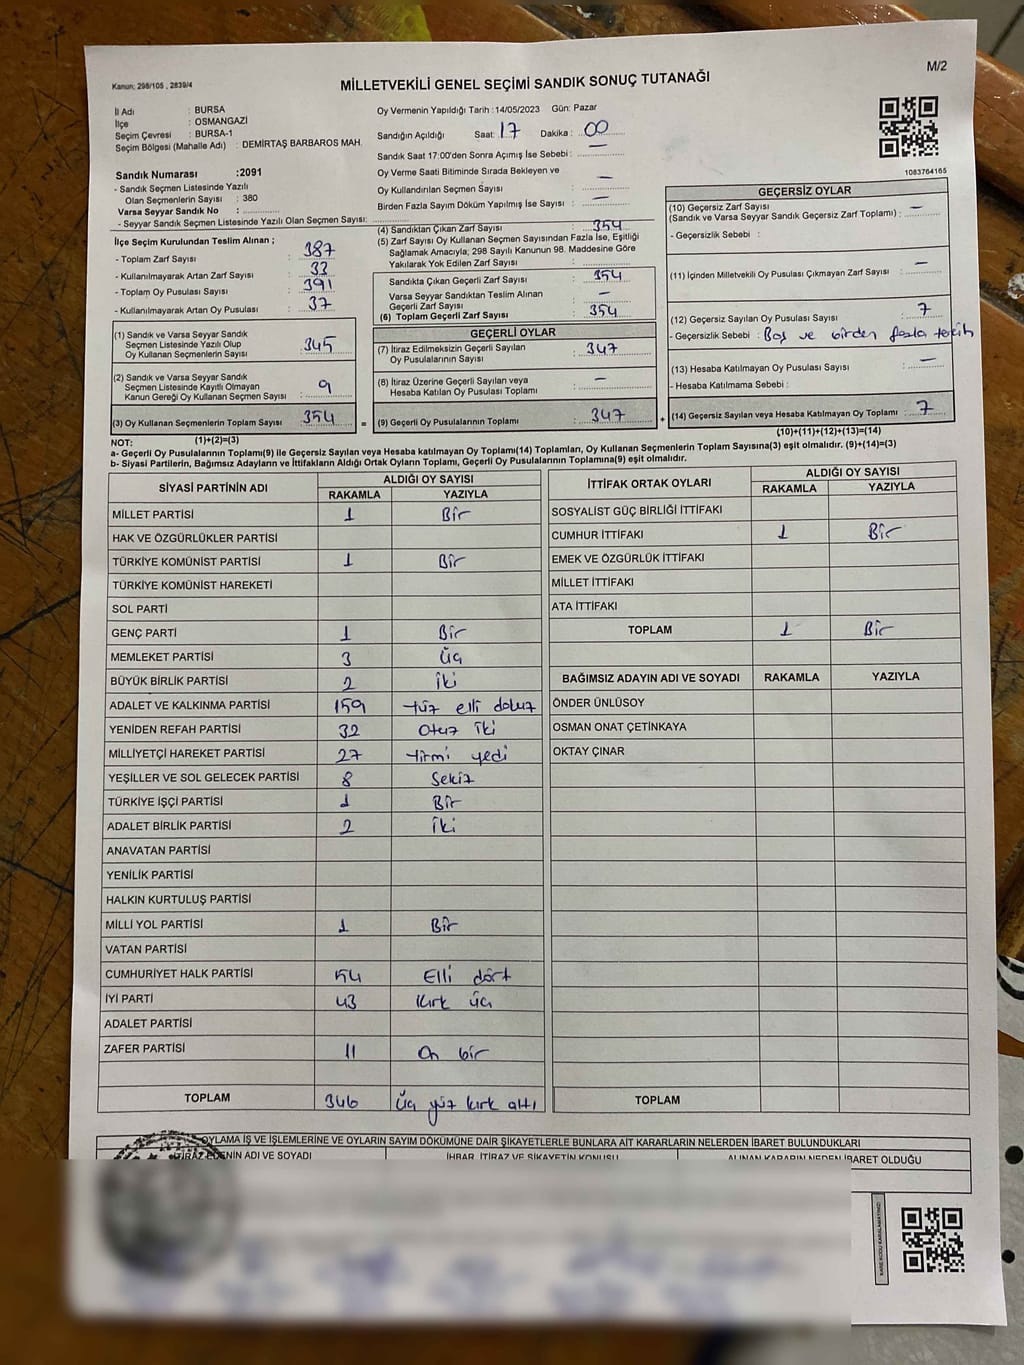 Kanun: 298/105 , 2839/4
M/2
MİLLETVEKİLİ GENEL SEÇİMİ SANDIK SONUÇ TUTANAĞI
İl Adı : BURSA
İlçe : OSMANGAZİ
Seçim Çevresi : BURSA-1
Seçim Bölgesi (Mahalle Adı) : DEMİRTAŞ BARBAROS MAH.
Oy Vermenin Yapıldığı Tarih : 14/05/2023 Gün: Pazar
Sandığın Açıldığı Saat: 17 Dakika : 00
Sandık Saat 17:00'den Sonra Açımış İse Sebebi : —
Oy Verme Saati Bitiminde Sırada Bekleyen ve
Oy Kullandırılan Seçmen Sayısı : —
Birden Fazla Sayım Döküm Yapılmış İse Sayısı : —
1083764165
Sandık Numarası :2091
- Sandık Seçmen Listesinde Yazılı
Olan Seçmenlerin Sayısı : 380
Varsa Seyyar Sandık No :
- Seyyar Sandık Seçmen Listesinde Yazılı Olan Seçmen Sayısı:
İlçe Seçim Kurulundan Teslim Alınan ;
- Toplam Zarf Sayısı : 387
- Kullanılmayarak Artan Zarf Sayısı : 33
- Toplam Oy Pusulası Sayısı : 391
- Kullanılmayarak Artan Oy Pusulası : 37
(1) Sandık ve Varsa Seyyar Sandık
Seçmen Listesinde Yazılı Olup
Oy Kullanan Seçmenlerin Sayısı : 345
(2) Sandık ve Varsa Seyyar Sandık
Seçmen Listesinde Kayıtlı Olmayan
Kanun Gereği Oy Kullanan Seçmen Sayısı : 9
(3) Oy Kullanan Seçmenlerin Toplam Sayısı : 354
(1)+(2)=(3)
(4) Sandıktan Çıkan Zarf Sayısı : 354
(5) Zarf Sayısı Oy Kullanan Seçmen Sayısından Fazla İse, Eşitliği
Sağlamak Amacıyla; 298 Sayılı Kanunun 98. Maddesine Göre
Yakılarak Yok Edilen Zarf Sayısı :
Sandıkta Çıkan Geçerli Zarf Sayısı : 354
Varsa Seyyar Sandıktan Teslim Alınan
Geçerli Zarf Sayısı : —
(6) Toplam Geçerli Zarf Sayısı : 354
GEÇERLİ OYLAR
(7) İtiraz Edilmeksizin Geçerli Sayılan
Oy Pusulalarının Sayısı : 347
(8) İtiraz Üzerine Geçerli Sayılan veya
Hesaba Katılan Oy Pusulası Toplamı : —
= (9) Geçerli Oy Pusulalarının Toplamı : 347 +
GEÇERSİZ OYLAR
(10) Geçersiz Zarf Sayısı
(Sandık ve Varsa Seyyar Sandık Geçersiz Zarf Toplamı) : —
- Geçersizlik Sebebi :
(11) İçinden Milletvekili Oy Pusulası Çıkmayan Zarf Sayısı : —
(12) Geçersiz Sayılan Oy Pusulası Sayısı : 7
- Geçersizlik Sebebi : Boş ve birden fazla tercih
(13) Hesaba Katılmayan Oy Pusulası Sayısı : —
- Hesaba Katılmama Sebebi :
(14) Geçersiz Sayılan veya Hesaba Katılmayan Oy Toplamı : 7
(10)+(11)+(12)+(13)=(14)
NOT:
a- Geçerli Oy Pusulalarının Toplamı(9) ile Geçersiz Sayılan veya Hesaba katılmayan Oy Toplamı(14) Toplamları, Oy Kullanan Seçmenlerin Toplam Sayısına(3) eşit olmalıdır. (9)+(14)=(3)
b- Siyasi Partilerin, Bağımsız Adayların ve İttifakların Aldığı Ortak Oyların Toplamı, Geçerli Oy Pusulalarının Toplamına(9) eşit olmalıdır.
SİYASİ PARTİNİN ADI ALDIĞI OY SAYISI
RAKAMLA YAZIYLA
MİLLET PARTİSİ 1 Bir
HAK VE ÖZGÜRLÜKLER PARTİSİ
TÜRKİYE KOMÜNİST PARTİSİ 1 Bir
TÜRKİYE KOMÜNİST HAREKETİ
SOL PARTİ
GENÇ PARTİ 1 Bir
MEMLEKET PARTİSİ 3 Üç
BÜYÜK BİRLİK PARTİSİ 2 İki
ADALET VE KALKINMA PARTİSİ 159 Yüz elli dokuz
YENİDEN REFAH PARTİSİ 32 Otuz iki
MİLLİYETÇİ HAREKET PARTİSİ 27 Yirmi yedi
YEŞİLLER VE SOL GELECEK PARTİSİ 8 Sekiz
TÜRKİYE İŞÇİ PARTİSİ 1 Bir
ADALET BİRLİK PARTİSİ 2 İki
ANAVATAN PARTİSİ
YENİLİK PARTİSİ
HALKIN KURTULUŞ PARTİSİ
MİLLİ YOL PARTİSİ 1 Bir
VATAN PARTİSİ
CUMHURİYET HALK PARTİSİ 54 Elli dört
İYİ PARTİ 43 Kırk üç
ADALET PARTİSİ
ZAFER PARTİSİ 11 On bir
TOPLAM 346 Üç yüz kırk altı
İTTİFAK ORTAK OYLARI ALDIĞI OY SAYISI
RAKAMLA YAZIYLA
SOSYALİST GÜÇ BİRLİĞİ İTTİFAKI
CUMHUR İTTİFAKI 1 Bir
EMEK VE ÖZGÜRLÜK İTTİFAKI
MİLLET İTTİFAKI
ATA İTTİFAKI
TOPLAM 1 Bir
BAĞIMSIZ ADAYIN ADI VE SOYADI RAKAMLA YAZIYLA
ÖNDER ÜNLÜSOY
OSMAN ONAT ÇETİNKAYA
OKTAY ÇINAR
TOPLAM
OYLAMA İŞ VE İŞLEMLERİNE VE OYLARIN SAYIM DÖKÜMÜNE DAİR ŞİKAYETLERLE BUNLARA AİT KARARLARIN NELERDEN İBARET BULUNDUKLARI
İTİRAZ EDENİN ADI VE SOYADI İHBAR, İTİRAZ VE ŞİKAYETİN KONUSU ALINAN KARARIN NEDEN İBARET OLDUĞU
KARE KODU KARALAMAYINIZ!